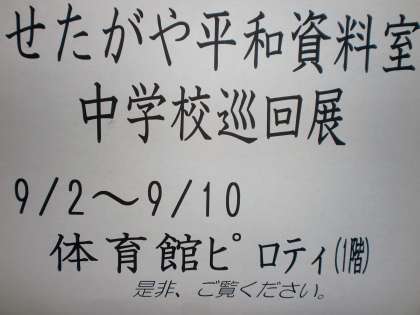 せたがや平和資料室
中学校巡回展
9/2〜9/10
体育館ピロティ(1階)
是非、ご覧ください。